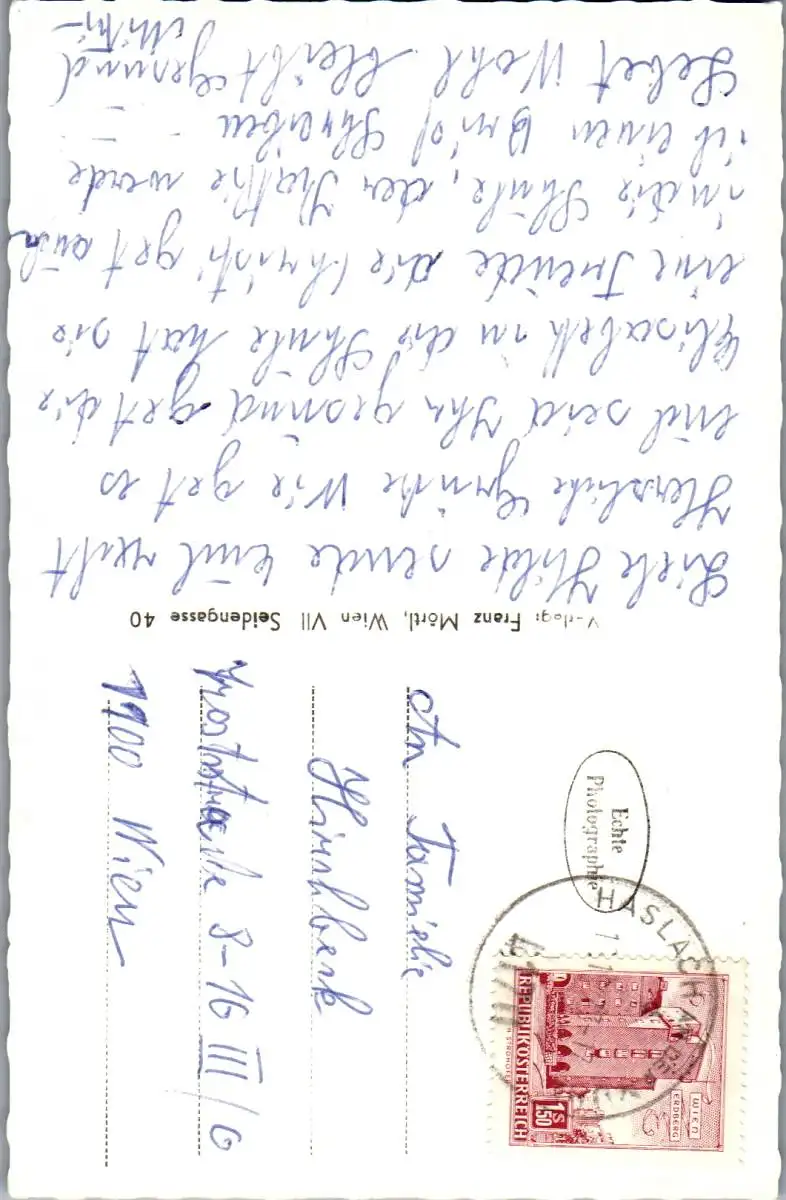 Liebe Hilde sende Euch recht
Herzliche Grüße Wie get es
Euch seid Ihr gesund get die
Elisabeth in die Schule hat sie
eine Freude die Christi get auch
in die Schule, der Kathie werde
ich einen Brief Schreiben
Lebet Wohl bleibt gesund
Mitzi
Verlag: Franz Mörtl, Wien VII Seidengasse 40
Echte
Photographie
HASLACH AN DER
REPUBLIK ÖSTERREICH
WIEN
ERDBERG
1S
1.50
An Familie
Hirschbeck
8-16 III/6
1100 Wien